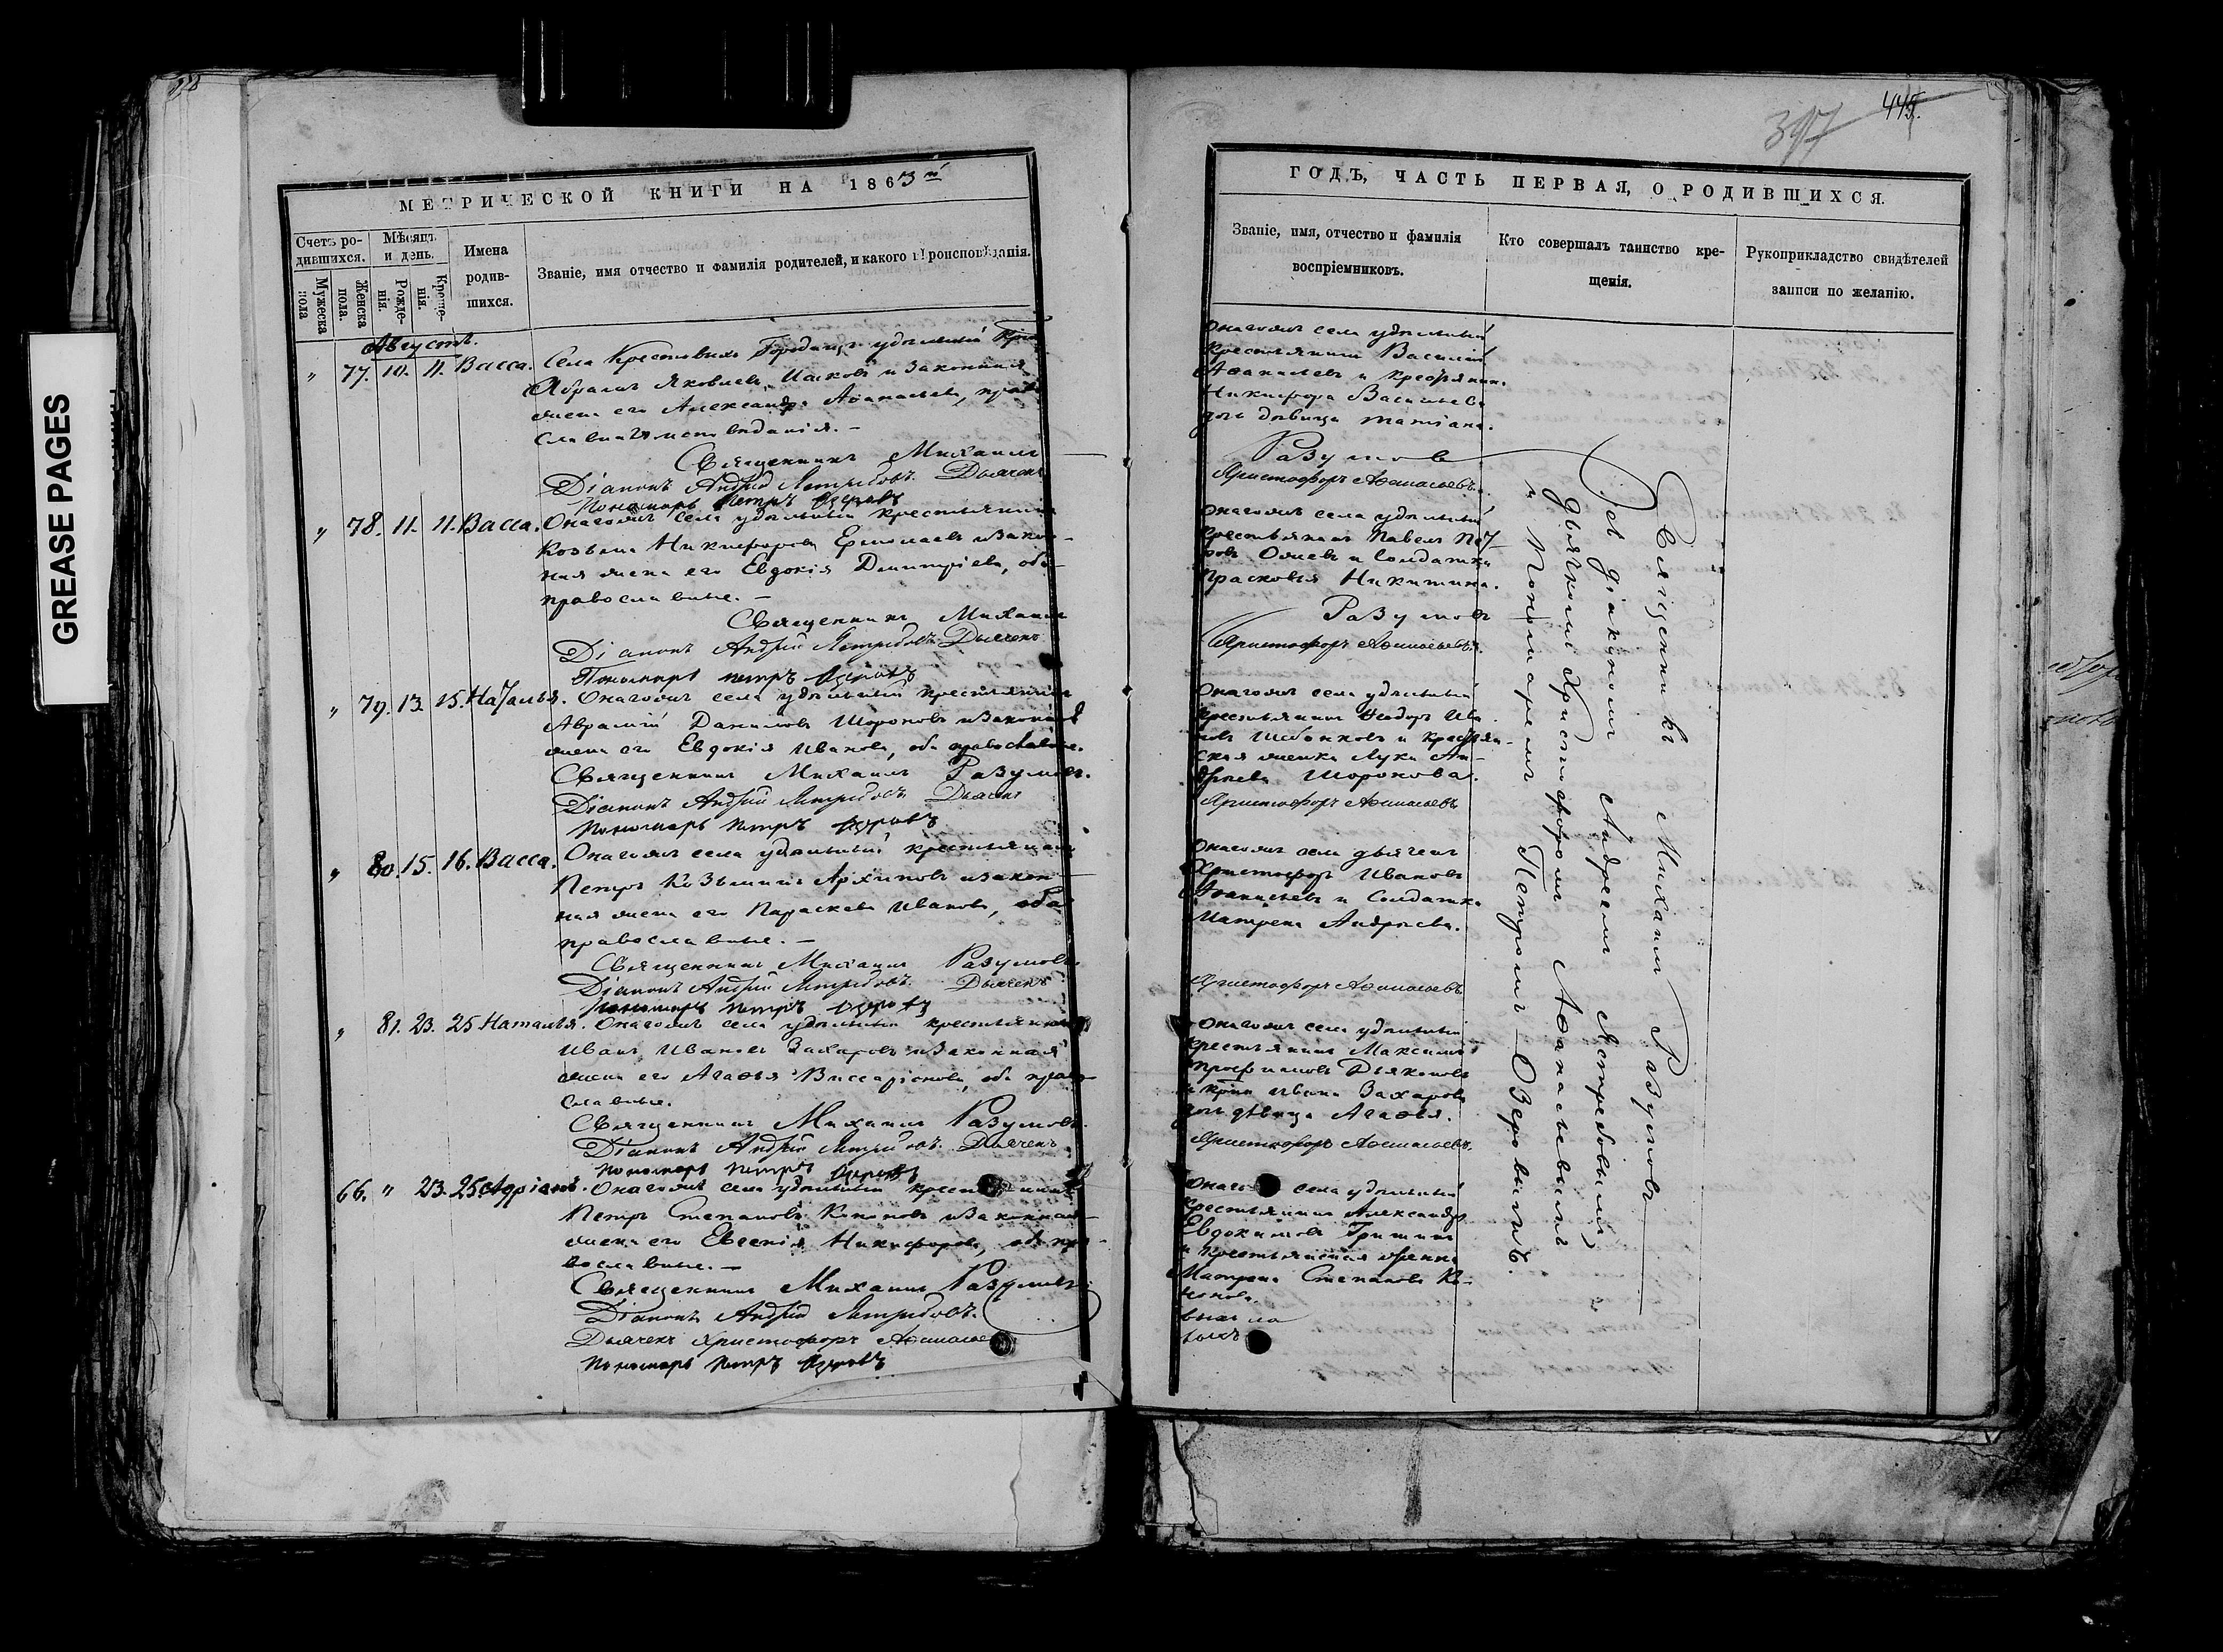 GREASE PAGES
МЕТРИЧЕСКОЙ КНИГИ НА 1863й
Счетъ ро-
дившихся.
Мужеска
пола
Женска
пола.
Мѣсяцъ
и день.
Рожде-
нія.
Креще-
нія.
Имена
родив-
шихся.
Званіе, имя отчество и фамилія родителей, и какого вѣроисповѣданія.
Августъ.
" 77. 10. 11. Васса. Села Крестовыхъ Городищъ удѣльный
Абрамъ Яковлевъ и законная
жена его Александра Аѳанасьева, право
славнаго исповѣданія. –
Священникъ Михаилъ
Діаконъ Андрей Ястребовъ. Дьячекъ
Пономарь Петръ Озеровъ
" 78. 11. 11. Васса. Онагожъ села удѣльный крестьянинъ
Козьма Никифоровъ Ермолаевъ и закон-
ная жена его Евдокія Димитріева, оба
православные. –
Священникъ Михаилъ
Діаконъ Андрей Ястребовъ. Дьячекъ
Пономарь Петръ Озеровъ
" 79. 13. 15. Наталья. Онагожъ села удѣльный крестьянинъ
Авраамій Даниловъ Шороновъ и законная
жена его Евдокія Иванова, оба православные.
Священникъ Михаилъ Разумовъ.
Діаконъ Андрей Ястребовъ Дьячекъ
Пономарь Петръ Озеровъ
" 80. 15. 16. Васса. Онагожъ села удѣльный крестьянинъ
Петръ Козьминъ Архиповъ и закон-
ная жена его Параскева Иванова, оба
православные. –
Священникъ Михаилъ Разумовъ
Діаконъ Андрей Ястребовъ. Дьячекъ
Пономарь Петръ Озеровъ
" 81. 23. 25 Наталья. Онагожъ села удѣльный крестьянинъ
Иванъ Ивановъ Захаровъ и законная
жена его Агаѳья Виссаріонова, оба право-
славные.
Священникъ Михаилъ Разумовъ.
Діаконъ Андрей Ястребовъ. Дьячекъ
Пономарь Петръ Озеровъ
66. " 23. 25 Адріанъ. Онагожъ села удѣльный
Петръ Степановъ Кононовъ и законная
жена его Евгенія Никифорова, оба пра-
вославные. –
Священникъ Михаилъ Разумовъ
Діаконъ Андрей Ястребовъ.
Дьячекъ Христофоръ
Пономарь Петръ Озеровъ
445.
397
ГОДЪ, ЧАСТЬ ПЕРВАЯ, О РОДИВШИХСЯ.
Званіе, имя, отчество и фамилія
воспріемниковъ.
Кто совершалъ таинство кре-
щенія.
Рукоприкладство свидѣтелей
записи по желанію.
Онагожъ села удѣльный
крестьянинъ Василій
Аѳанасьевъ и
Никифора Васильева
дочь дѣвица Татіана.
Разумовъ
Христофоръ Аѳанасьевъ.
Онагожъ села удѣльный
крестьянинъ Павелъ Пет-
ровъ и солдатка
Прасковья Никитина.
Разумовъ
Христофоръ Аѳанасьевъ.
Онагожъ села удѣльный
крестьянинъ Ѳеодоръ Ива-
новъ и крестьян-
ская женка Лука Ан-
дреева Шоронова.
Христофоръ Аѳанасьевъ
Онагожъ села дьячекъ
Христофоръ Ивановъ
Аѳанасьевъ и солдатка
Матрена Андреева.
Христофоръ Аѳанасьевъ
Онагожъ села удѣльный
крестьянинъ Максимъ
Дьяконовъ
Ивана Захарова
дочь дѣвица Агаѳья.
Христофоръ Аѳанасьевъ.
села удѣльный
крестьянинъ Александръ
Евдокимовъ Гришинъ
и крестьянская
Матрена Степанова Ко-
нонова.
Священникъ Михаилъ Разумовъ
съ діакономъ Андреемъ Ястребовымъ,
дьячкомъ Христофоромъ Аѳанасьевымъ
и пономаремъ Петромъ Озеровымъ.